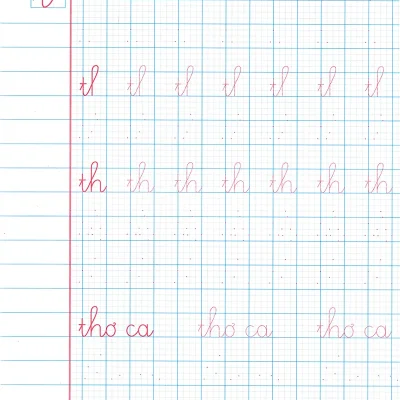 tl tl tl tl tl tl tl
th th th th th th th
thơ ca thơ ca thơ ca